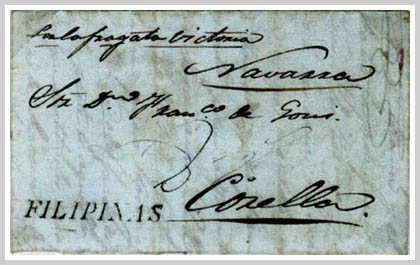 Por la fragata Victoria
Navarra
Sr. Dn. Franco. de Goñi.
Corella.
FILIPINAS